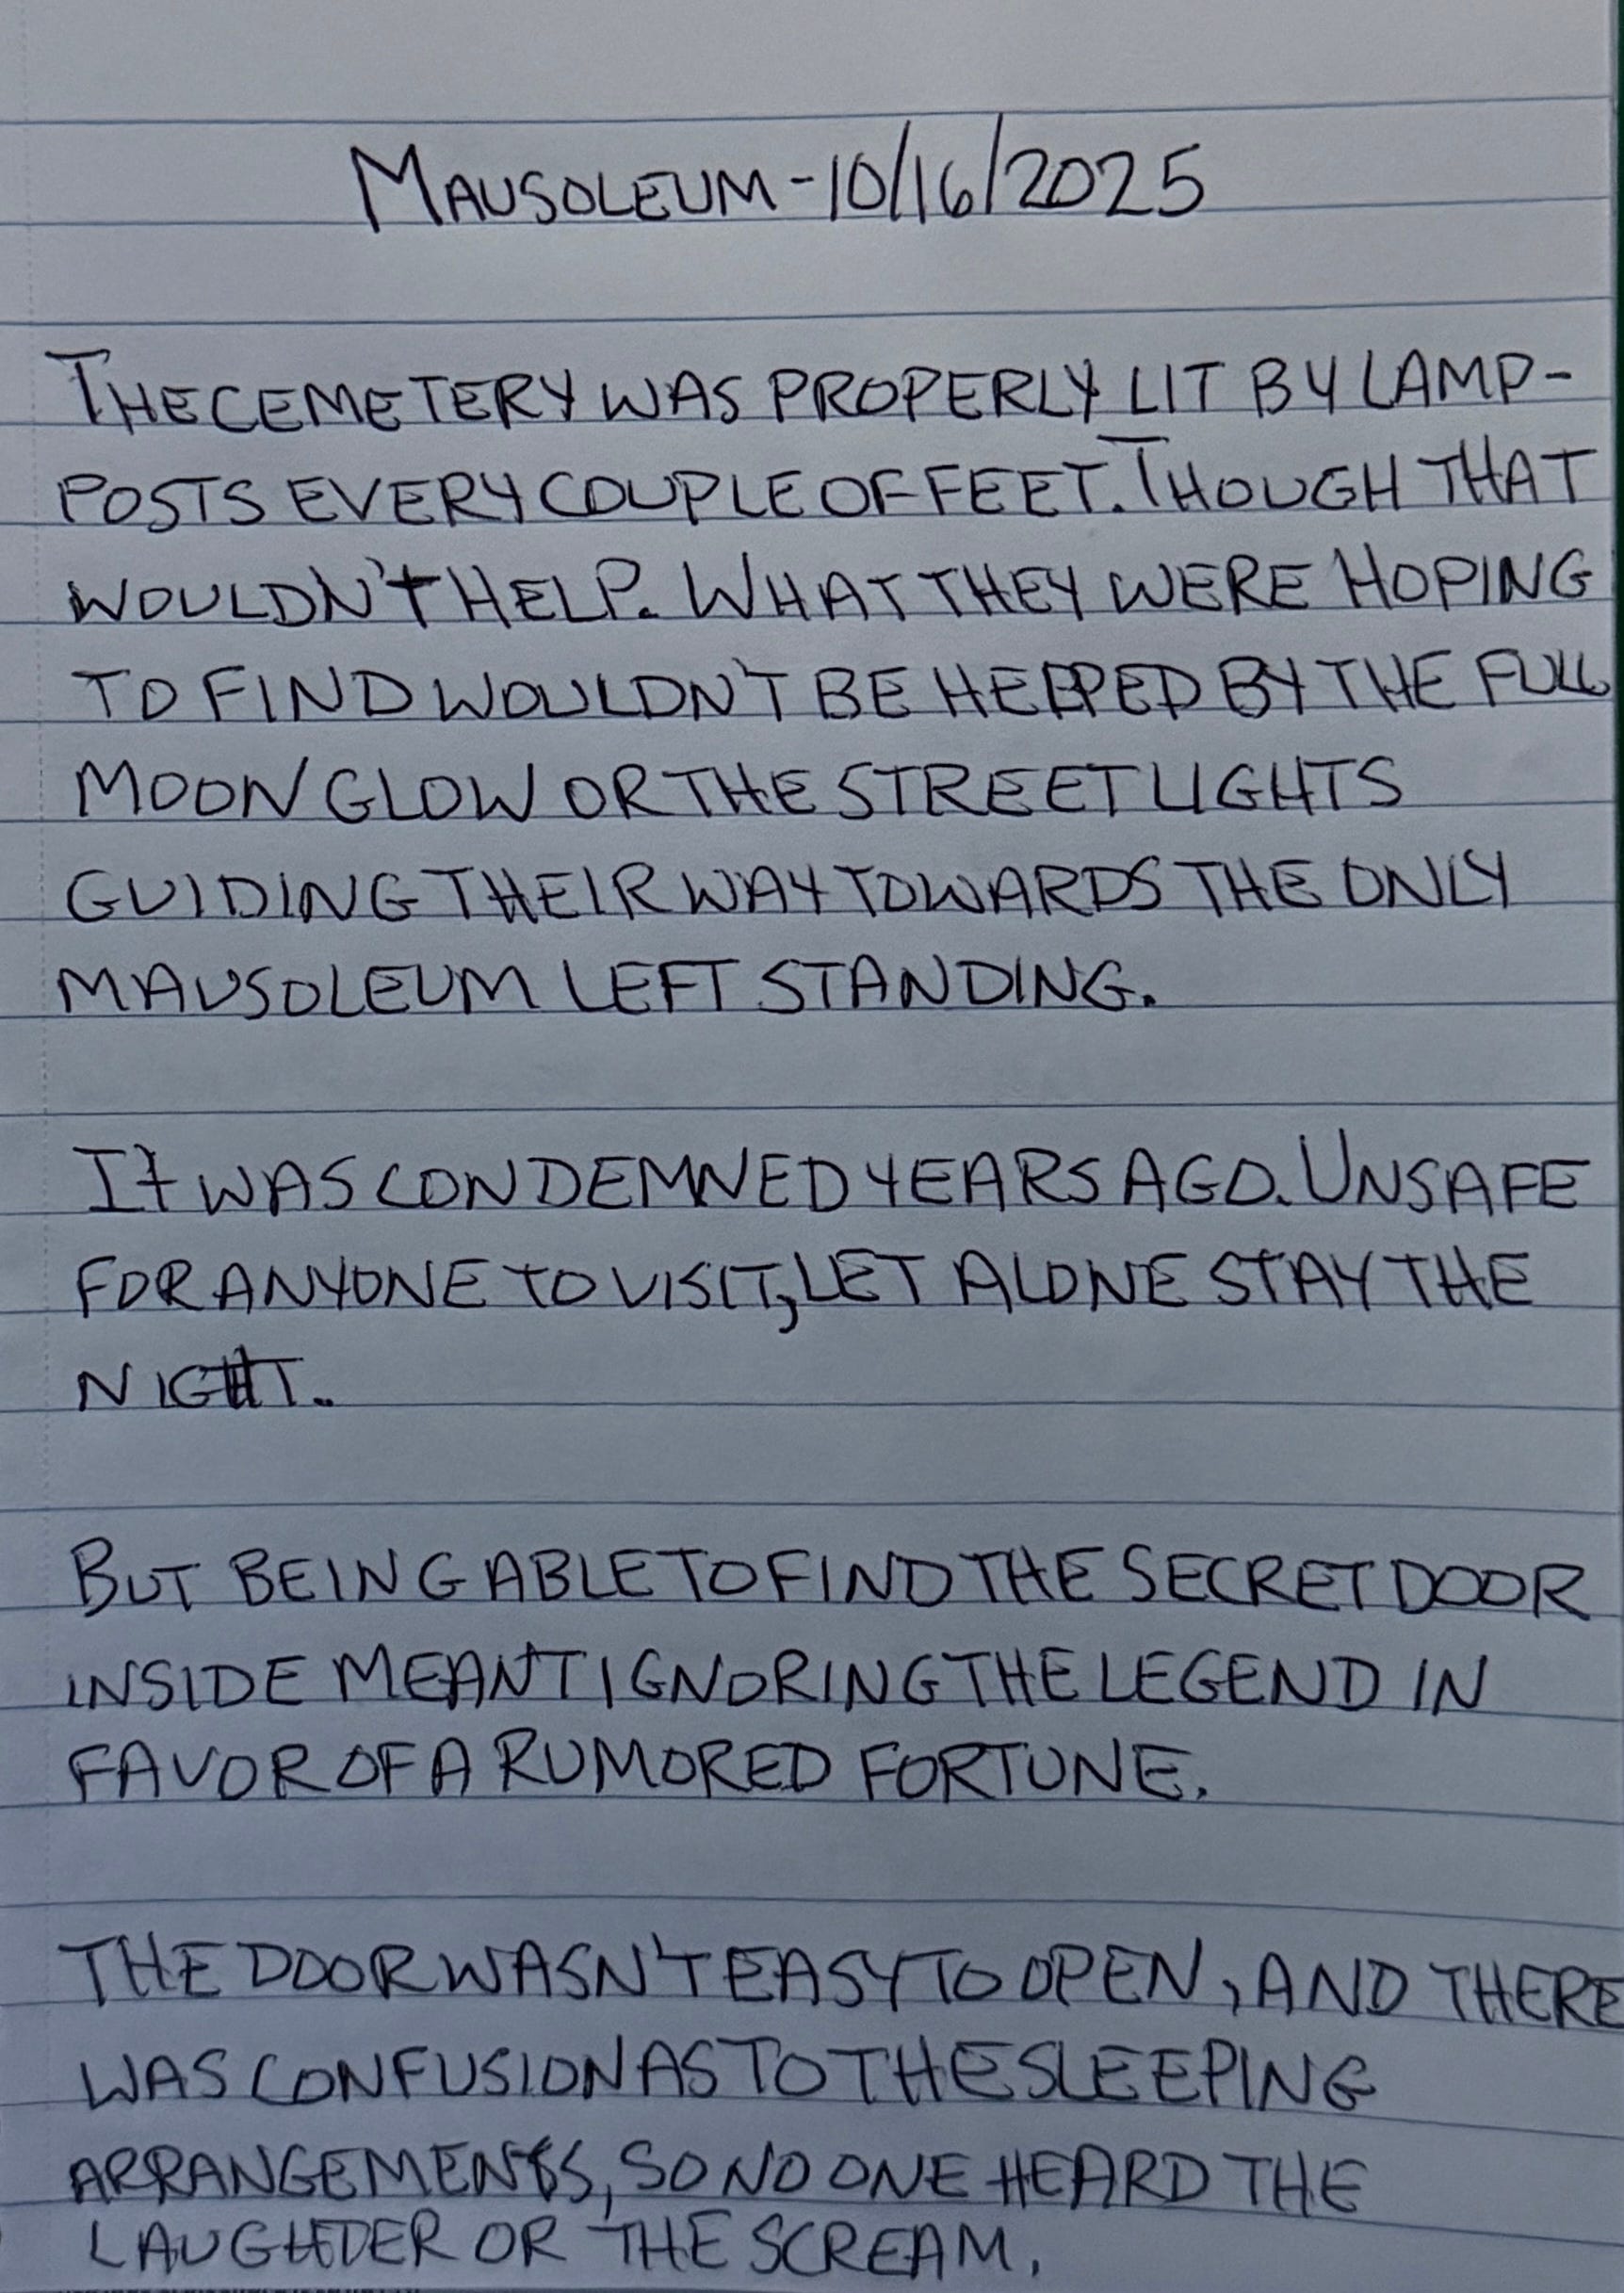 MAUSOLEUM - 10/16/2025
THE CEMETERY WAS PROPERLY LIT BY LAMP-
POSTS EVERY COUPLE OF FEET. THOUGH THAT
WOULDN'T HELP. WHAT THEY WERE HOPING
TO FIND WOULDN'T BE HELPED BY THE FULL
MOON GLOW OR THE STREET LIGHTS
GUIDING THEIR WAY TOWARDS THE ONLY
MAUSOLEUM LEFT STANDING.
It WAS CONDEMNED YEARS AGO. UNSAFE
FOR ANYONE TO VISIT, LET ALONE STAY THE
NIGHT.
BUT BEING ABLE TO FIND THE SECRET DOOR
INSIDE MEANT IGNORING THE LEGEND IN
FAVOR OF A RUMORED FORTUNE.
THE DOOR WASN'T EASY TO OPEN, AND THERE
WAS CONFUSION AS TO THE SLEEPING
ARRANGEMENTS, SO NO ONE HEARD THE
LAUGHTER OR THE SCREAM.